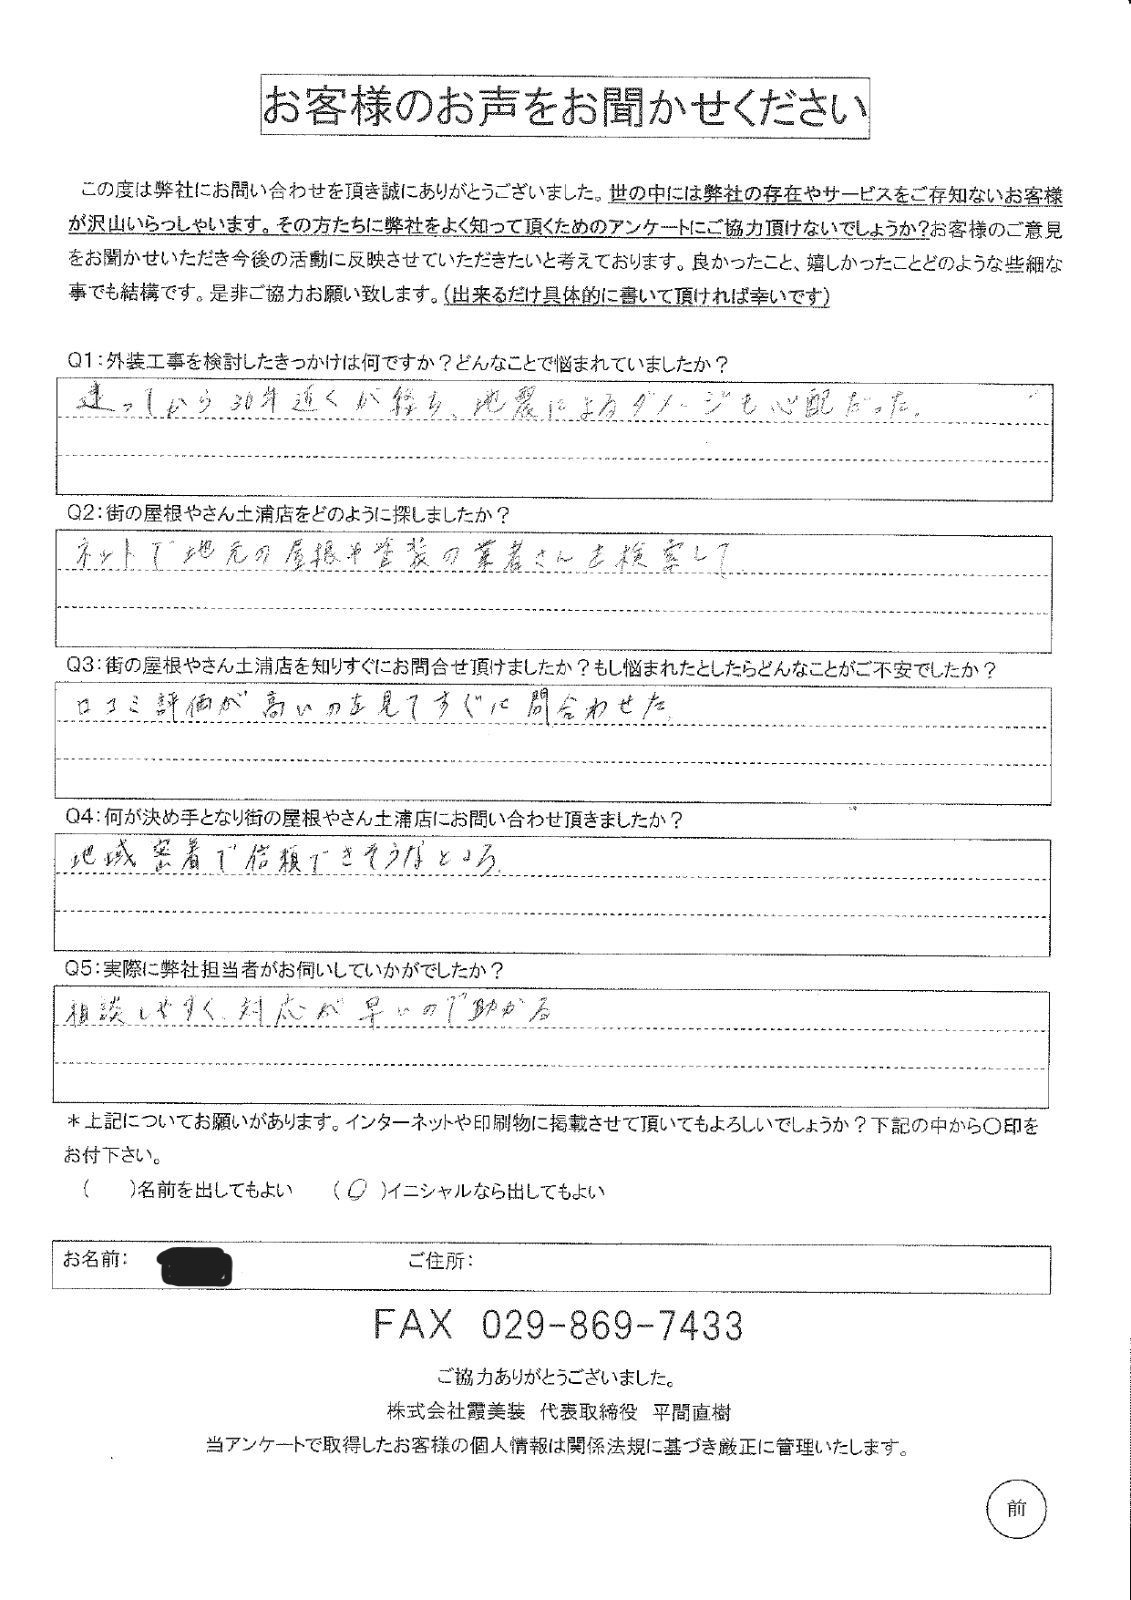 お客様のお声をお聞かせください
この度は弊社にお問い合わせを頂き誠にありがとうございました。世の中には弊社の存在やサービスをご存知ないお客様
が沢山いらっしゃいます。その方たちに弊社をよく知って頂くためのアンケートにご協力頂けないでしょうか?お客様のご意見
をお聞かせいただき今後の活動に反映させていただきたいと考えております。良かったこと、嬉しかったことどのような些細な
事でも結構です。是非ご協力お願い致します。(出来るだけ具体的に書いて頂ければ幸いです)
Q1:外装工事を検討したきっかけは何ですか?どんなことで悩まれていましたか?
建ってから30年近くが経ち、地震によるダメージも心配だった。
Q2:街の屋根やさん土浦店をどのように探しましたか?
ネットで地元の屋根や塗装の業者さんを検索して
Q3:街の屋根やさん土浦店を知りすぐにお問合せ頂けましたか?もし悩まれたとしたらどんなことがご不安でしたか?
口コミ評価が高いのを見てすぐに問合わせた。
Q4:何が決め手となり街の屋根やさん土浦店にお問い合わせ頂きましたか?
地域密着で信頼できそうなところ。
Q5:実際に弊社担当者がお伺いしていかがでしたか?
相談しやすく、対応が早いので助かる
*上記についてお願いがあります。インターネットや印刷物に掲載させて頂いてもよろしいでしょうか?下記の中から〇印を
お付下さい。
(　　)名前を出してもよい　　(〇)イニシャルなら出してもよい
お名前:　　ご住所:
FAX 029-869-7433
ご協力ありがとうございました。
株式会社霞美装　代表取締役　平間直樹
当アンケートで取得したお客様の個人情報は関係法規に基づき厳正に管理いたします。
前